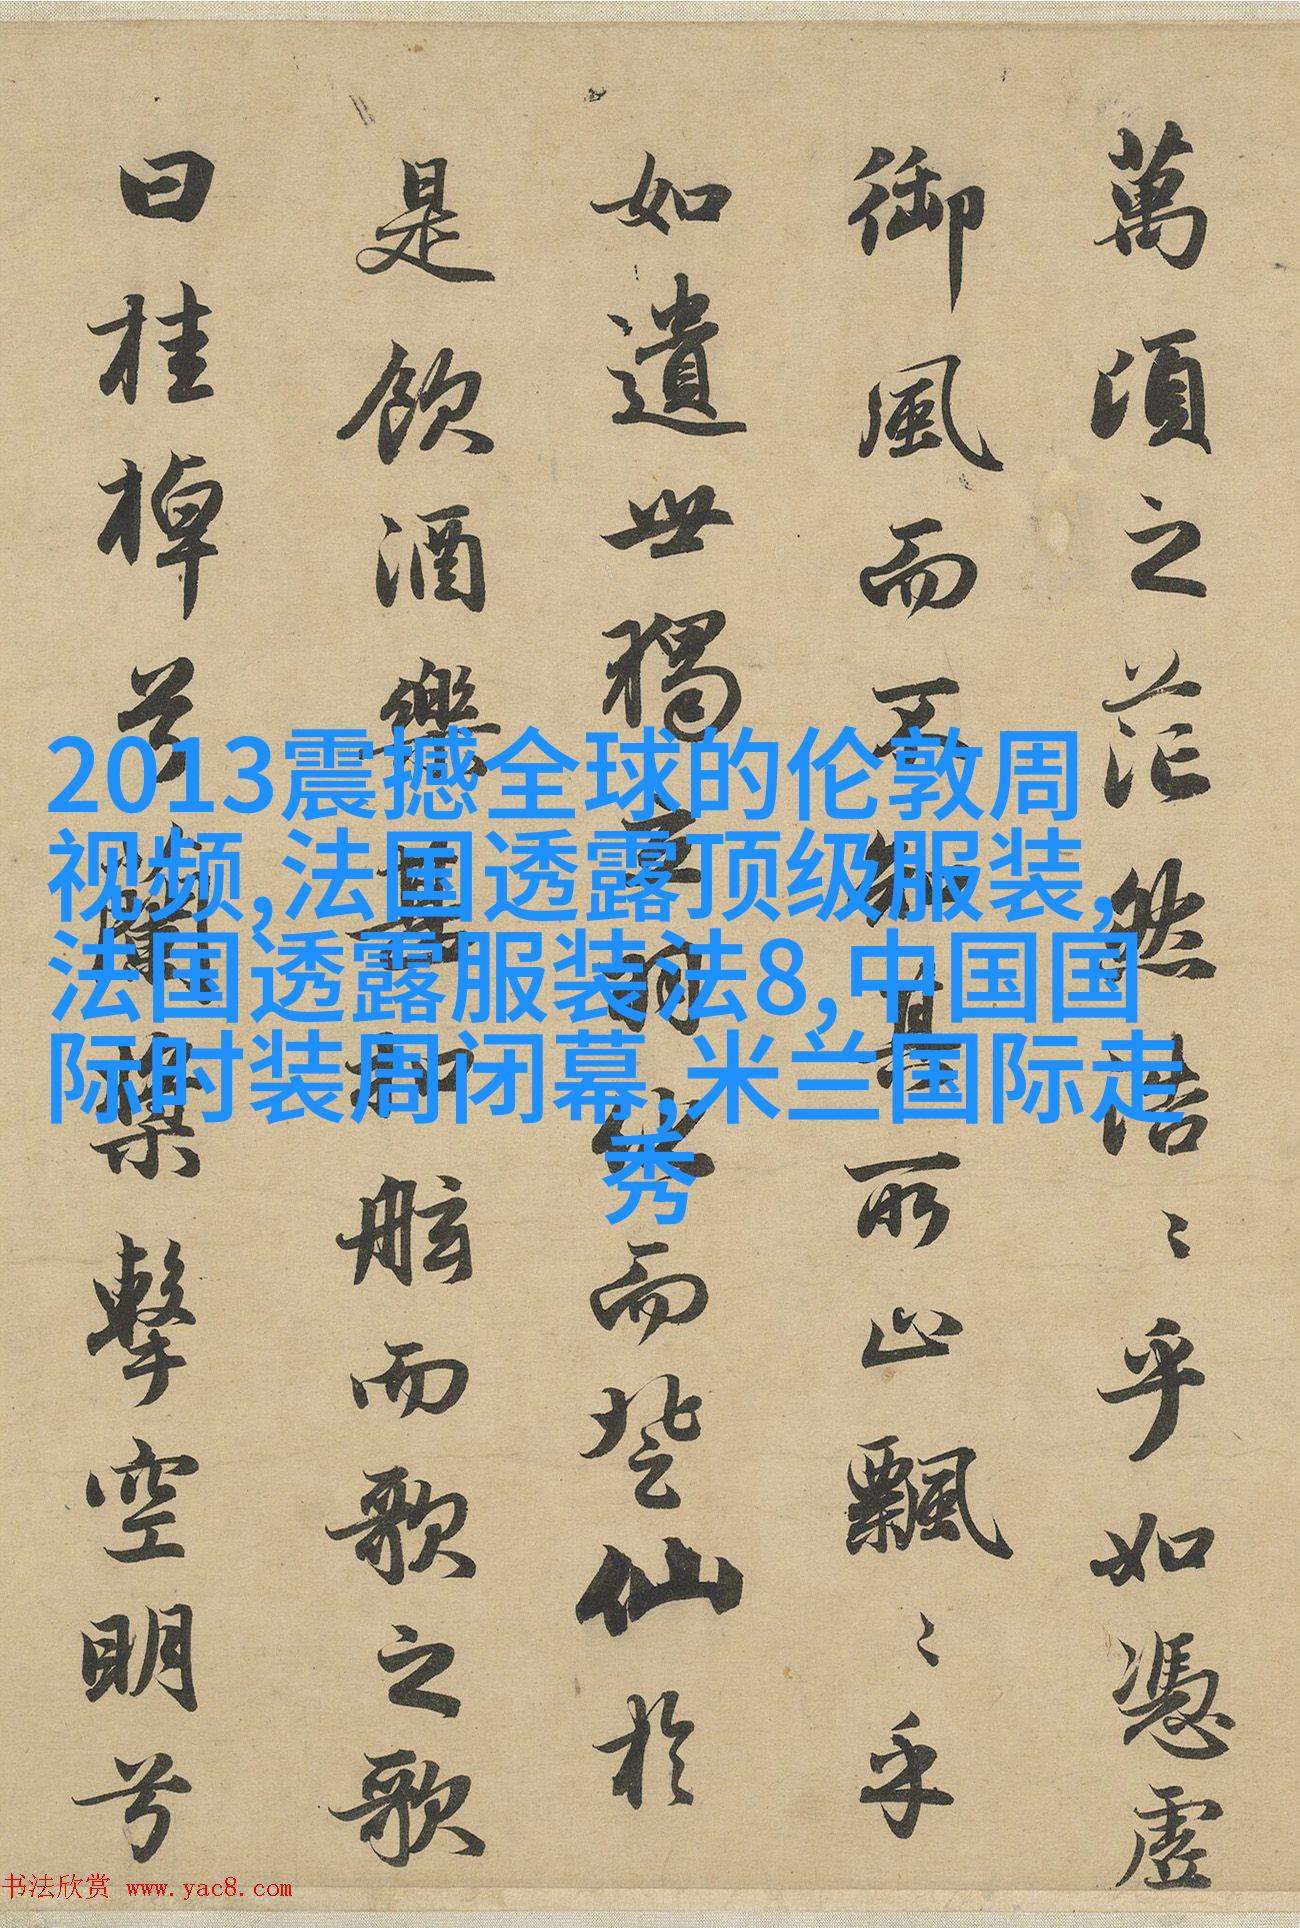 萬頃之茫然浩〻乎如憑虛
御風而不知其所止飄〻乎
如遺世獨立羽化而登仙於
是飲酒樂甚扣舷而歌之歌
曰桂棹兮蘭槳擊空明兮
2013震撼全球的伦敦周
视频,法国透露顶级服装,
法国透露服装法8,中国国
际时装周闭幕,米兰国际走
秀
书法欣赏 www.yac8.com